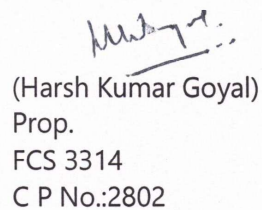 (Harsh Kumar Goyal)
Prop.
FCS 3314
C P No.:2802